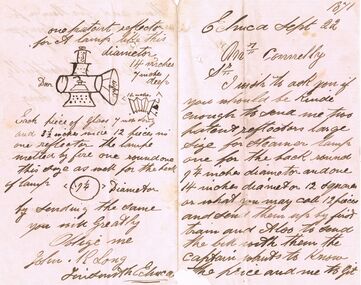 1871
Echuca Sept 22
Mr Connelly
Sir
I wish to ask you if
you would be kinde
enough to send me two
patent reflectors large
size for steamer lamp
one for the back round
9¼ diameter and one
14 inches diameter 12 square
or what you may call 12 faces
and send them up by first
train and Also to send
the bill with them the
captain wants to know
the price and me to
one patent reflector
for A lamp like this
diameter
14 inches
7 inches
deep
Each piece of glass 7 inches long
and 3½ inches wide 12 pieces in
one reflector the lamp
one round one
this size as well for the back
of lamp 9¼ Diameter
by sending the same
you will Greatly
Oblige me
John R Long
Tinsmith Echuca